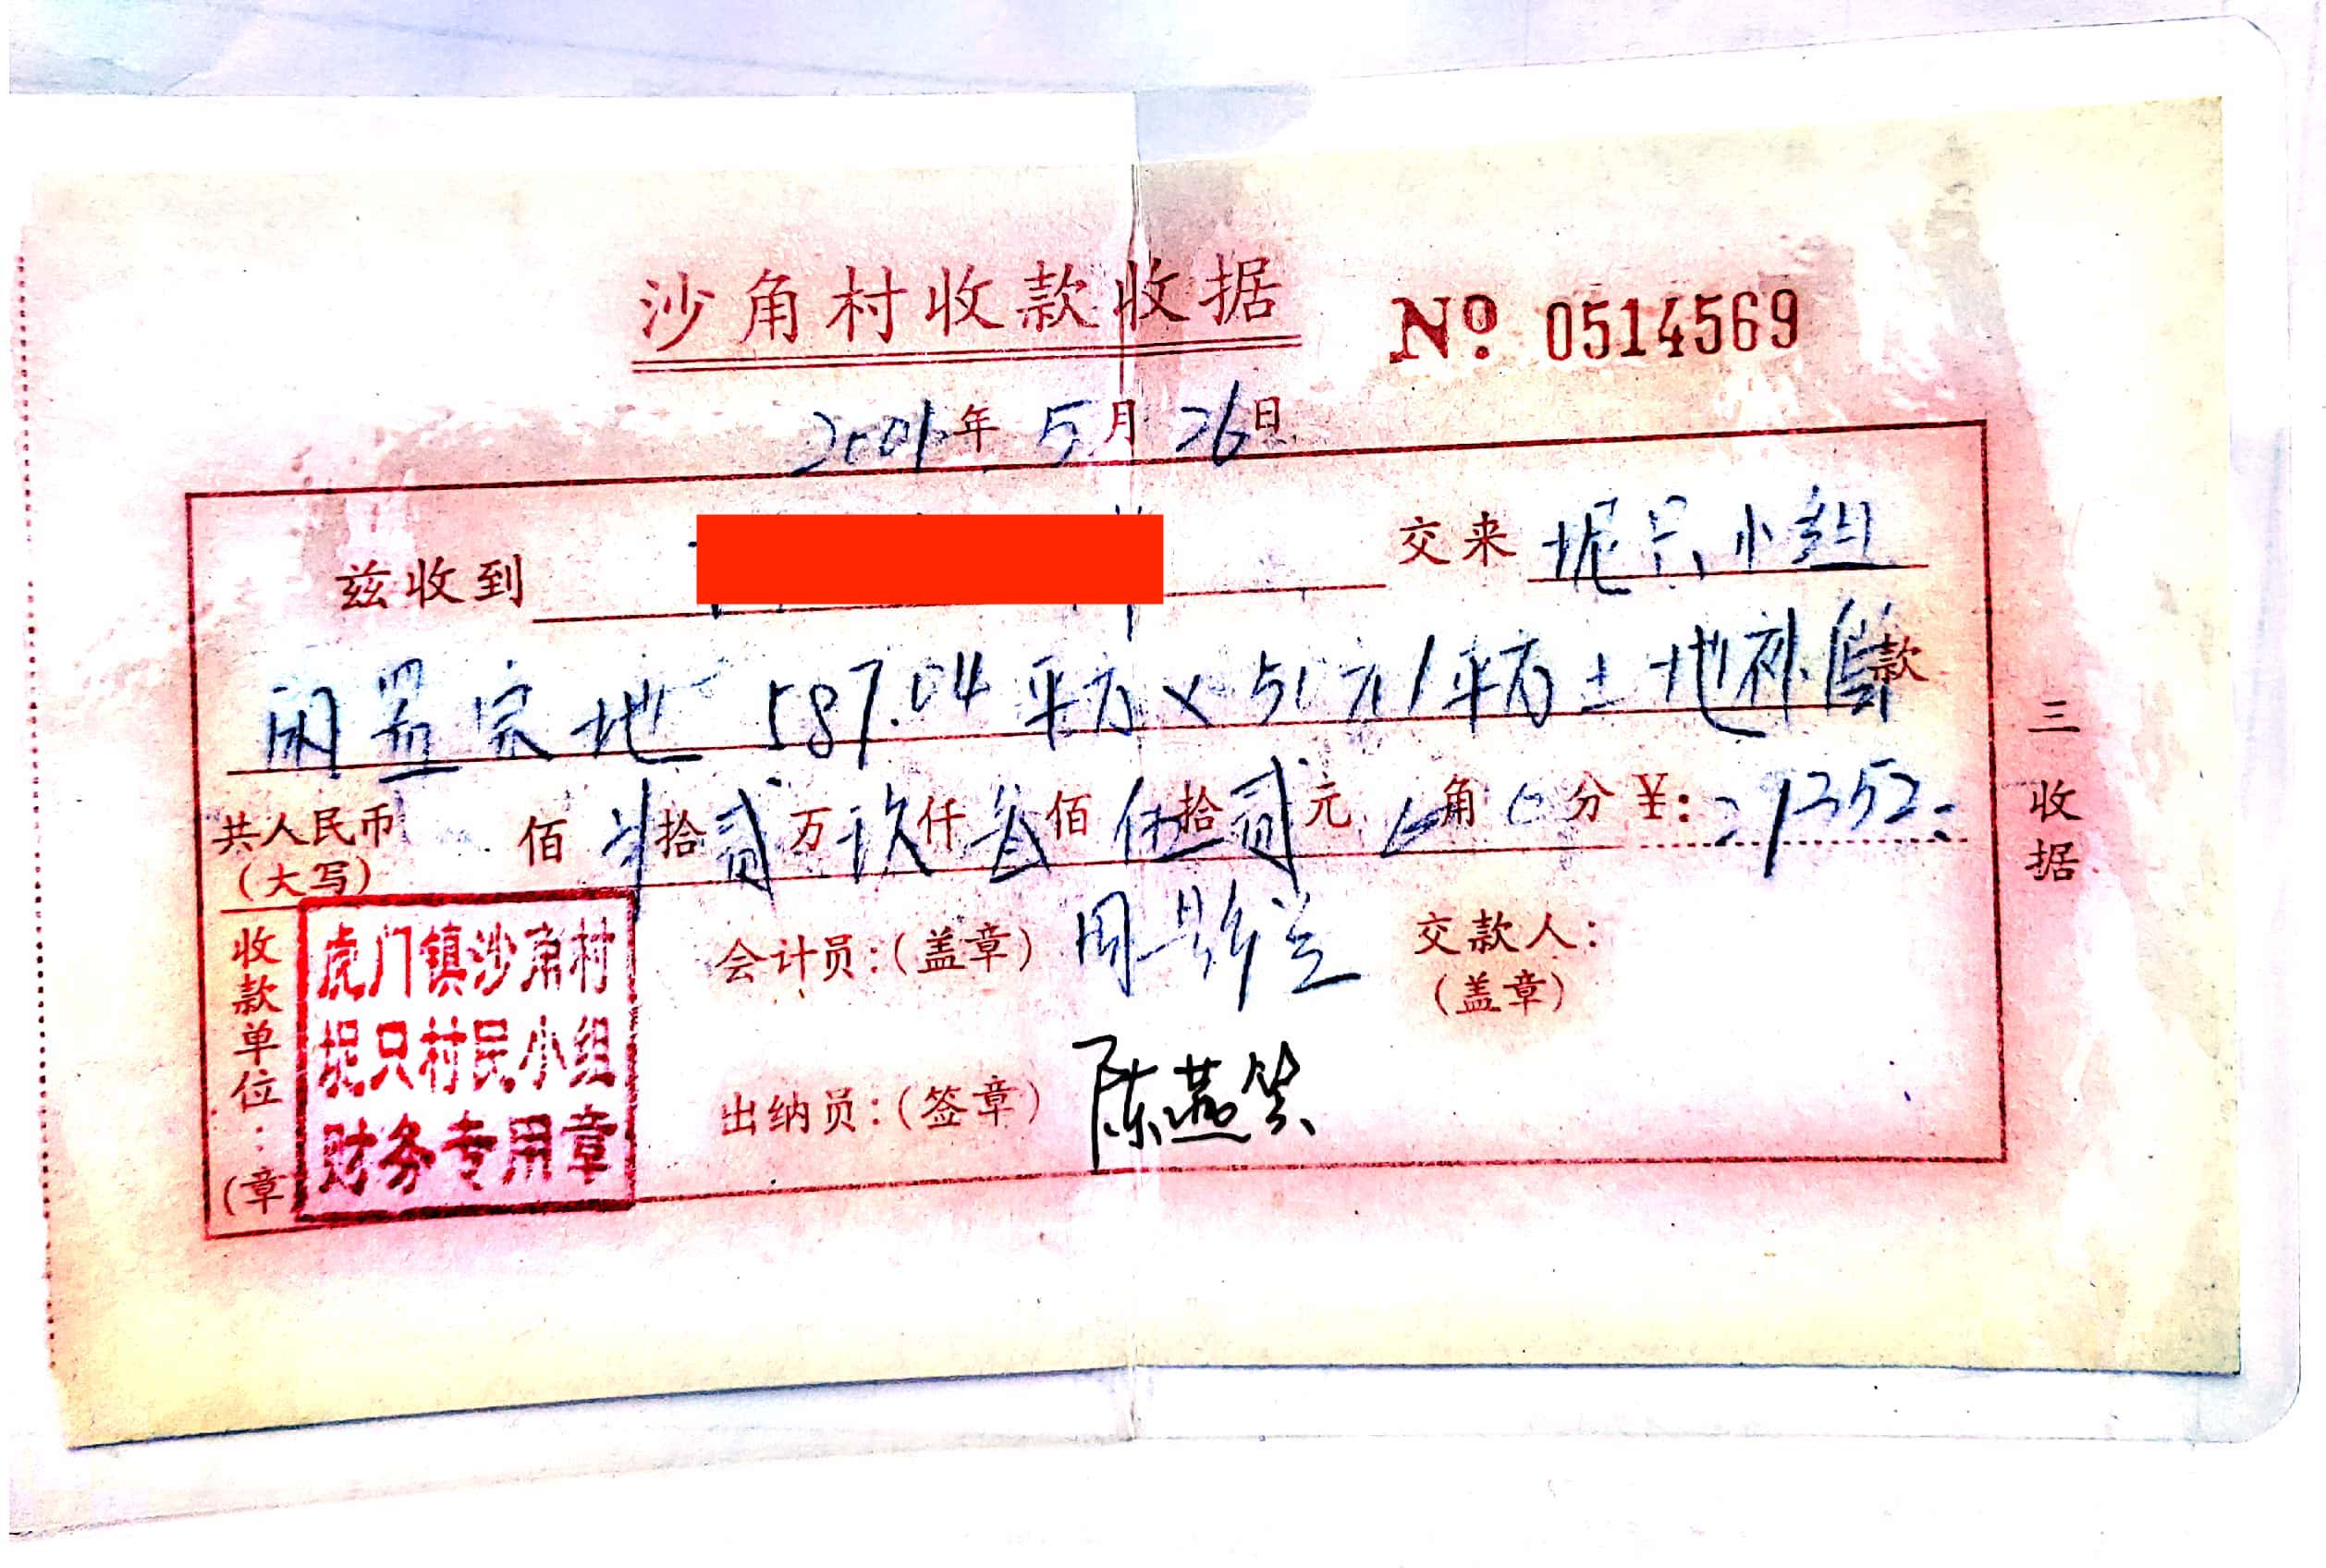 沙角村收款收据 No 0514569
2001年 5月 26日
兹收到 交来 坭只小组
闲置宗地 587.04平方×50元/平方土地补偿款
共人民币(大写) 佰 拾贰万玖仟叁佰伍拾贰元 角 分 ¥: 29352.
收款单位:(章)
虎门镇沙角村
坭只村民小组
财务专用章
会计员:(盖章) 周 兰
交款人:(盖章)
出纳员:(签章) 陈燕笑
三收据